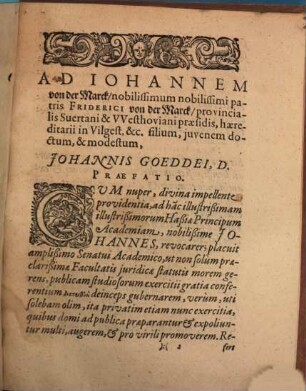 AD IOHANNEM
von der Marck/nobilissimum nobilissimi pa-
tris FRIDERICI von der Marck/provincia-
lis Suertani & VVesthoviani præsidis, hære-
ditarii in Vilgest, &c. filium, juvenem do-
ctum, & modestum,
JOHANNIS GOEDDEI, D.
PRÆFATIO.
CUM nuper, divina impellente
providentia, ad hãc illustrissimam
illustrissimorum Hassiæ Principum
Academiam, nobilissime JO-
HANNES, revocarer: placuit
amplissimo Senatui Academico, ut non solum præ-
clarissimæ Facultatis juridicæ statutis morem ge-
rens, publicam studiosorum exercitii gratia confe-
rentium deinceps gubernarem, verum, uti
solebam olim, ita privatim etiam nunc exercitia,
quibus domi ad publica præparantur & expoliun-
tur multi, augerem, & pro virili promoverem. Re-
2 fert